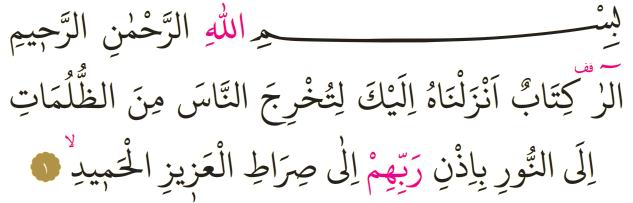 بِسْمِ اللهِ الرَّحْمٰنِ الرَّح۪يمِ
الٓرٰ۠ كِتَابٌ اَنْزَلْنَاهُ اِلَيْكَ لِتُخْرِجَ النَّاسَ مِنَ الظُّلُمَاتِ
اِلَى النُّورِ بِاِذْنِ رَبِّهِمْ اِلٰى صِرَاطِ الْعَز۪يزِ الْحَم۪يدِۙ ١